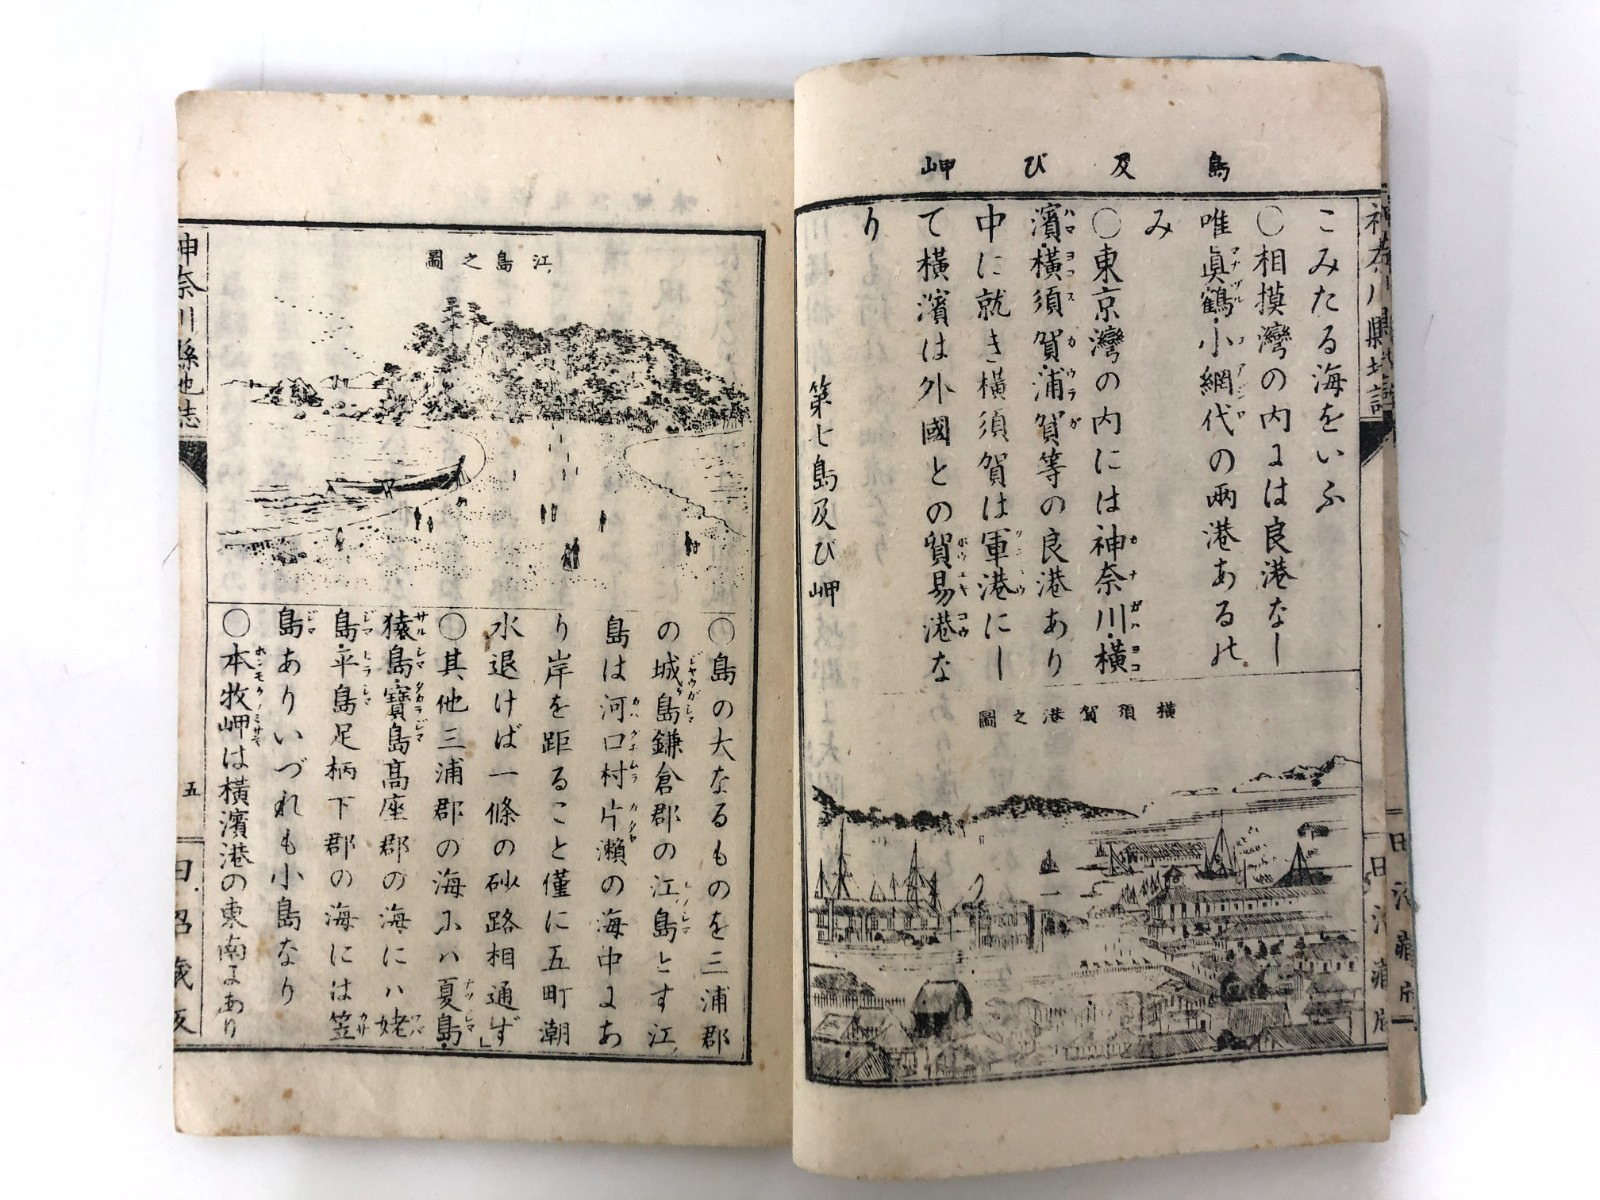 島及び岬
こみたる海をいふ
〇相摸灣の内には良港なし
唯眞鶴・小網代の兩港あるの
み
〇東京灣の内には神奈川・横
濱・横須賀・浦賀等の良港あり
中に就き横須賀は軍港にし
て横濱は外國との貿易港な
り
第七島及び岬
横須賀港之圖
江島之圖
〇島の大なるものを三浦郡
の城ヶ島鎌倉郡の江島とす江
島は河口村片瀬の海中にあ
り岸を距ること僅に五町潮
水退けば一條の砂路相通ず」
〇其他三浦郡の海にハ夏島・
猿島・寶島高座郡の海にハ姥
島・平島足柄下郡の海には笠
島ありいづれも小島なり
〇本牧岬は横濱港の東南にあり
神奈川縣地志
五